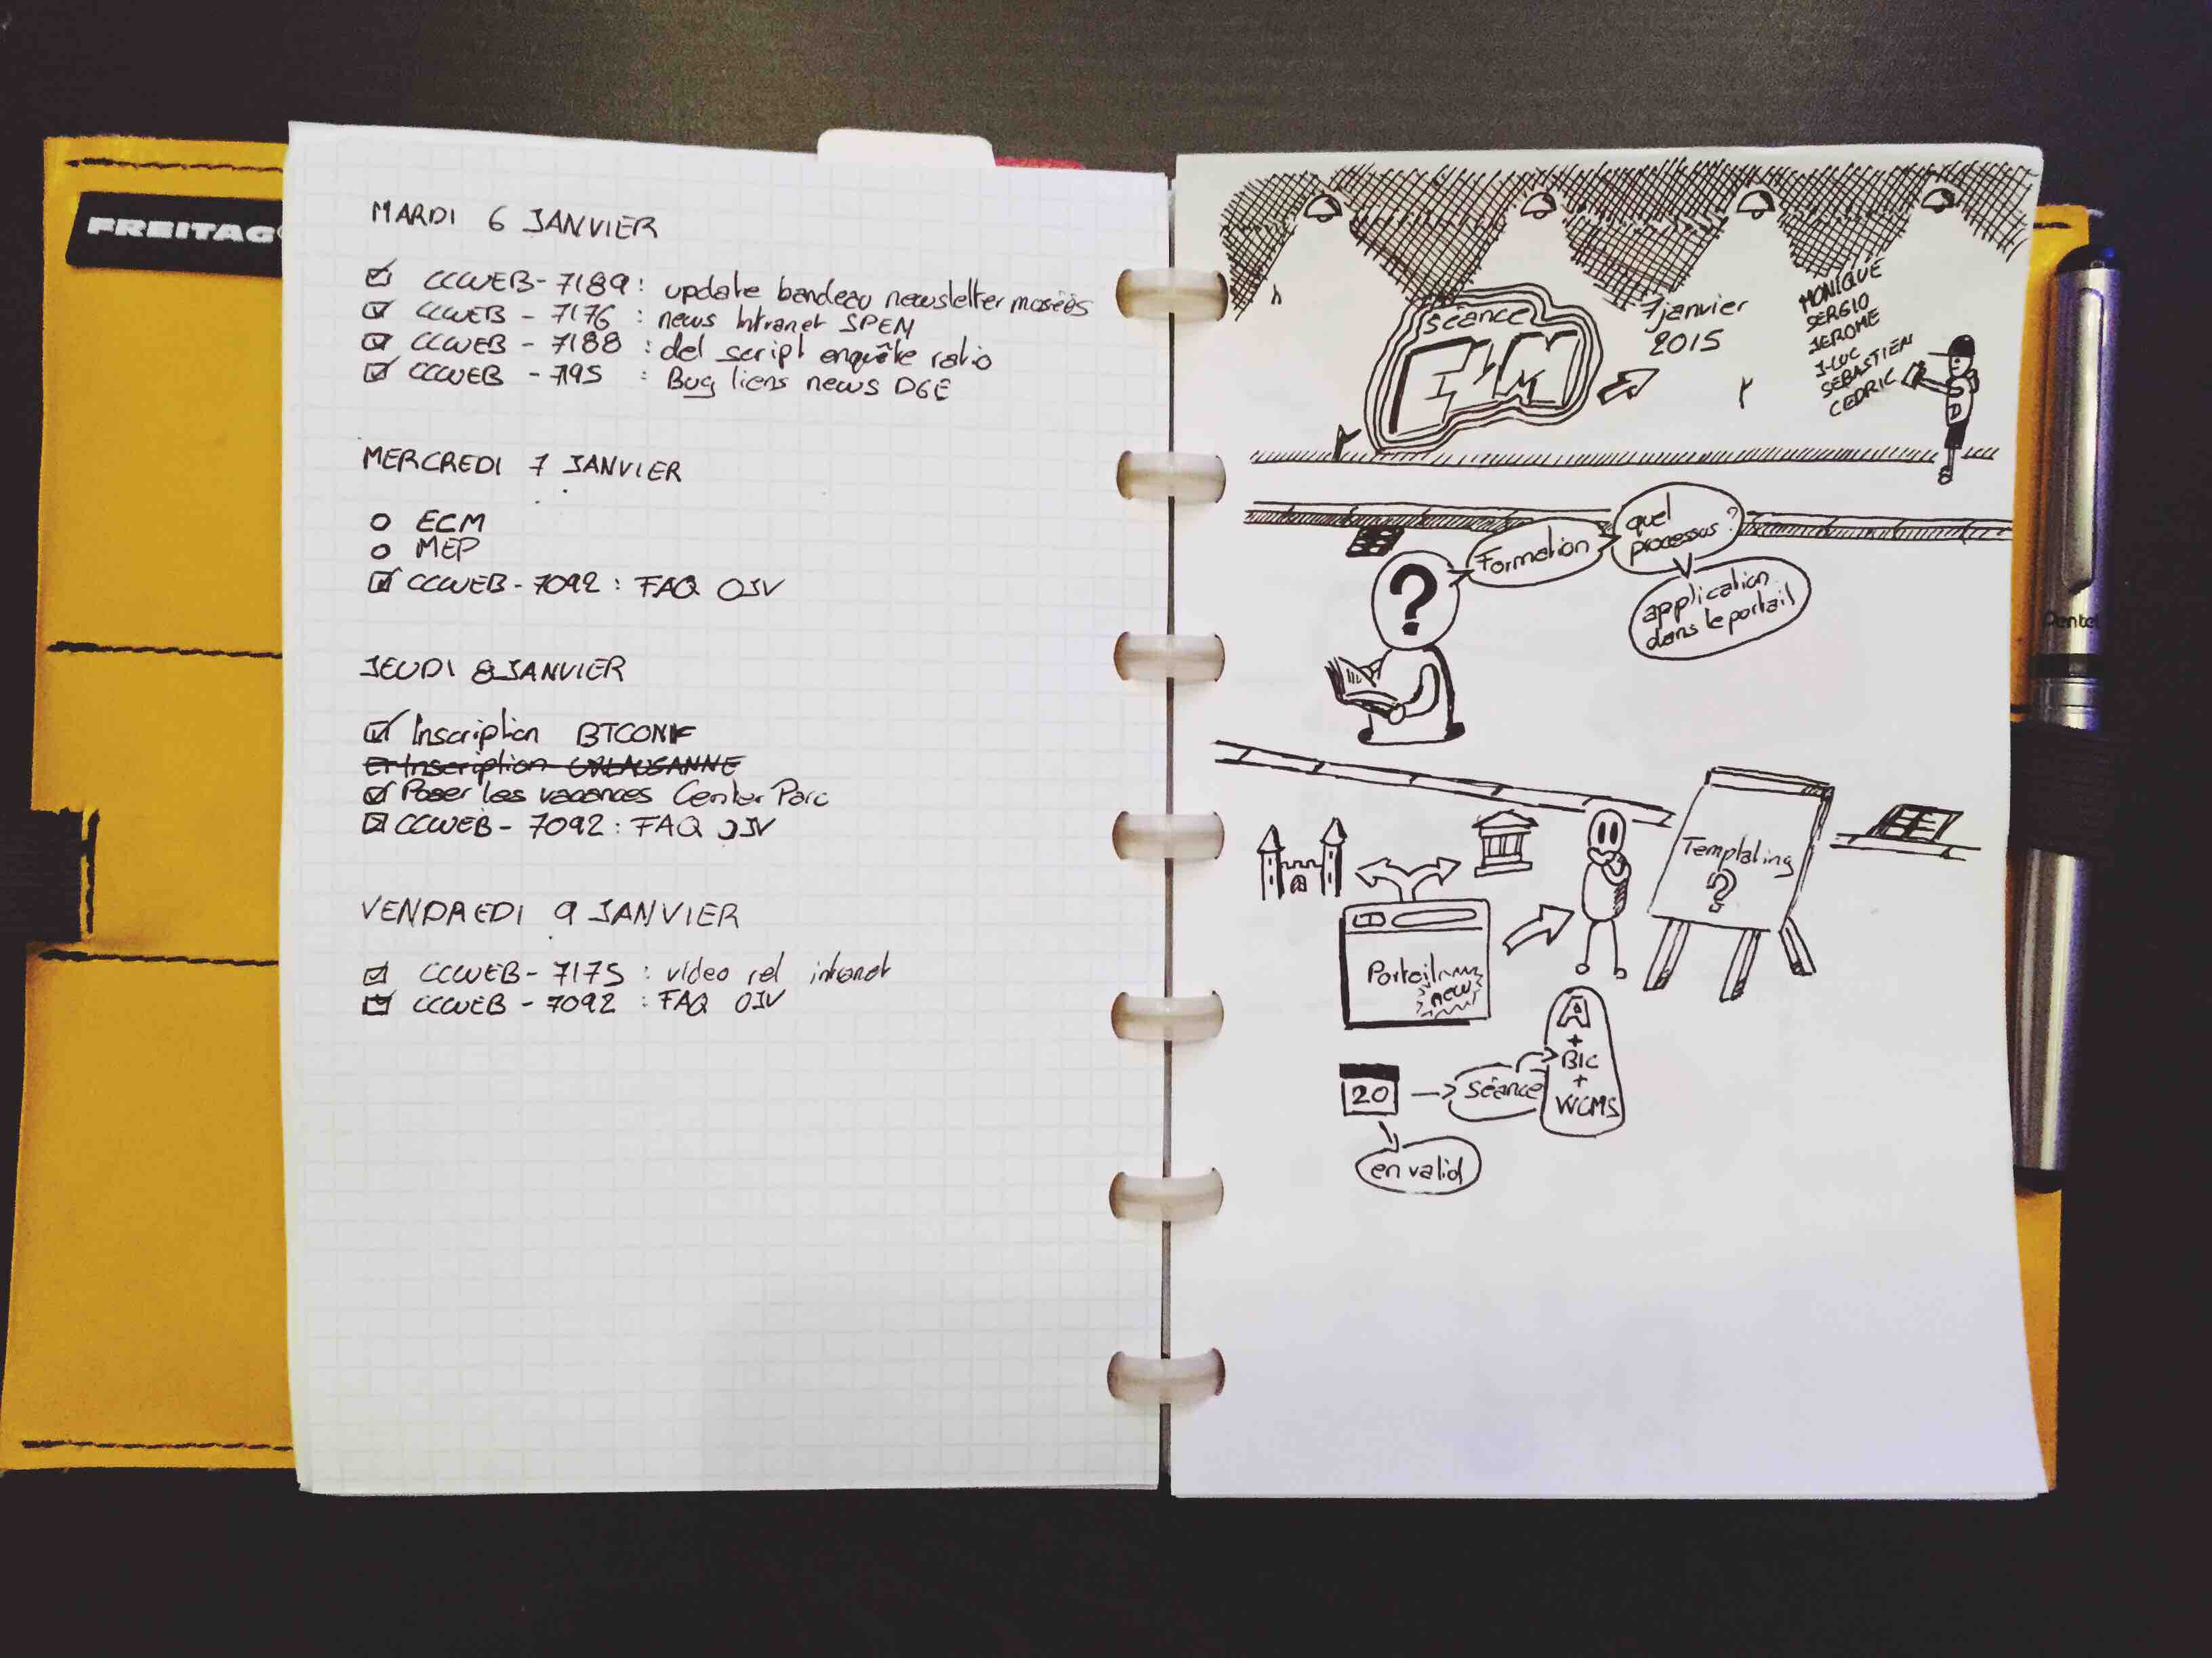 FREITAG
MARDI 6 JANVIER
CCWEB-7189: update bandeau newsletter musées
CCWEB - 7176 : news Intranet SPEN
CCWEB - 7188 : del script enquête ratio
CCWEB - 7195 : Bug liens news DGE
MERCREDI 7 JANVIER
ECM
MEP
CCWEB-7092: FAQ OJV
JEUDI 8 JANVIER
Inscription BTCONF
Inscription UXLAUSANNE
Poser les vacances Center Parc
CCWEB-7092: FAQ OJV
VENDREDI 9 JANVIER
CCWEB-7175: video rel intranet
CCWEB-7092: FAQ OJV
séance
7 janvier
2015
MONIQUE
SERGIO
JEROME
J-LUC
SEBASTIEN
CEDRIC
SD
?
Formation
quel
processus?
application
dans le portail
Templating
?
Portail
new
A
+
BIC
+
WCMS
20
Séance
en valid
Pentel